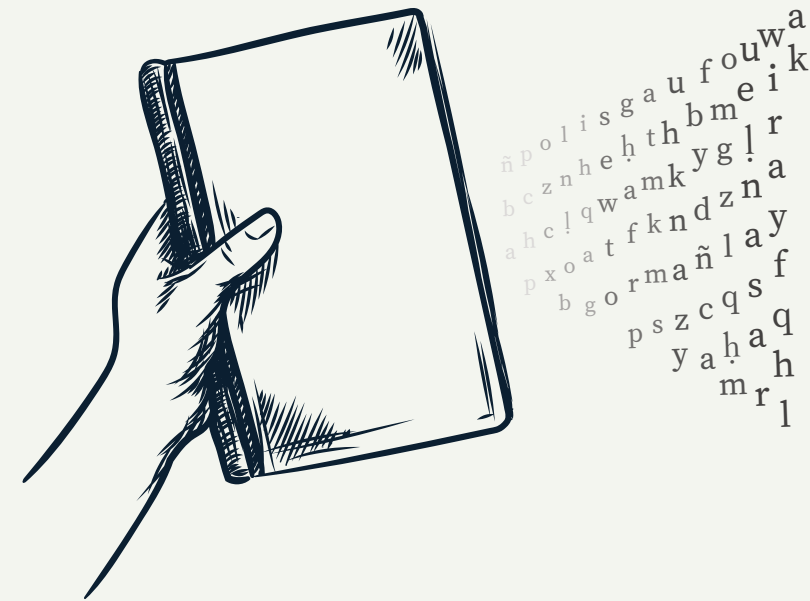 ñ p o l i s g a u f o u w a
b c z n h e ḥ t h b m e i k
a h c ḷ q w a m k y g ḷ r
p x o a t f k n d z n a
b g o r m a ñ l a y
p s z c q s f
y a ḥ a q
m h
r l